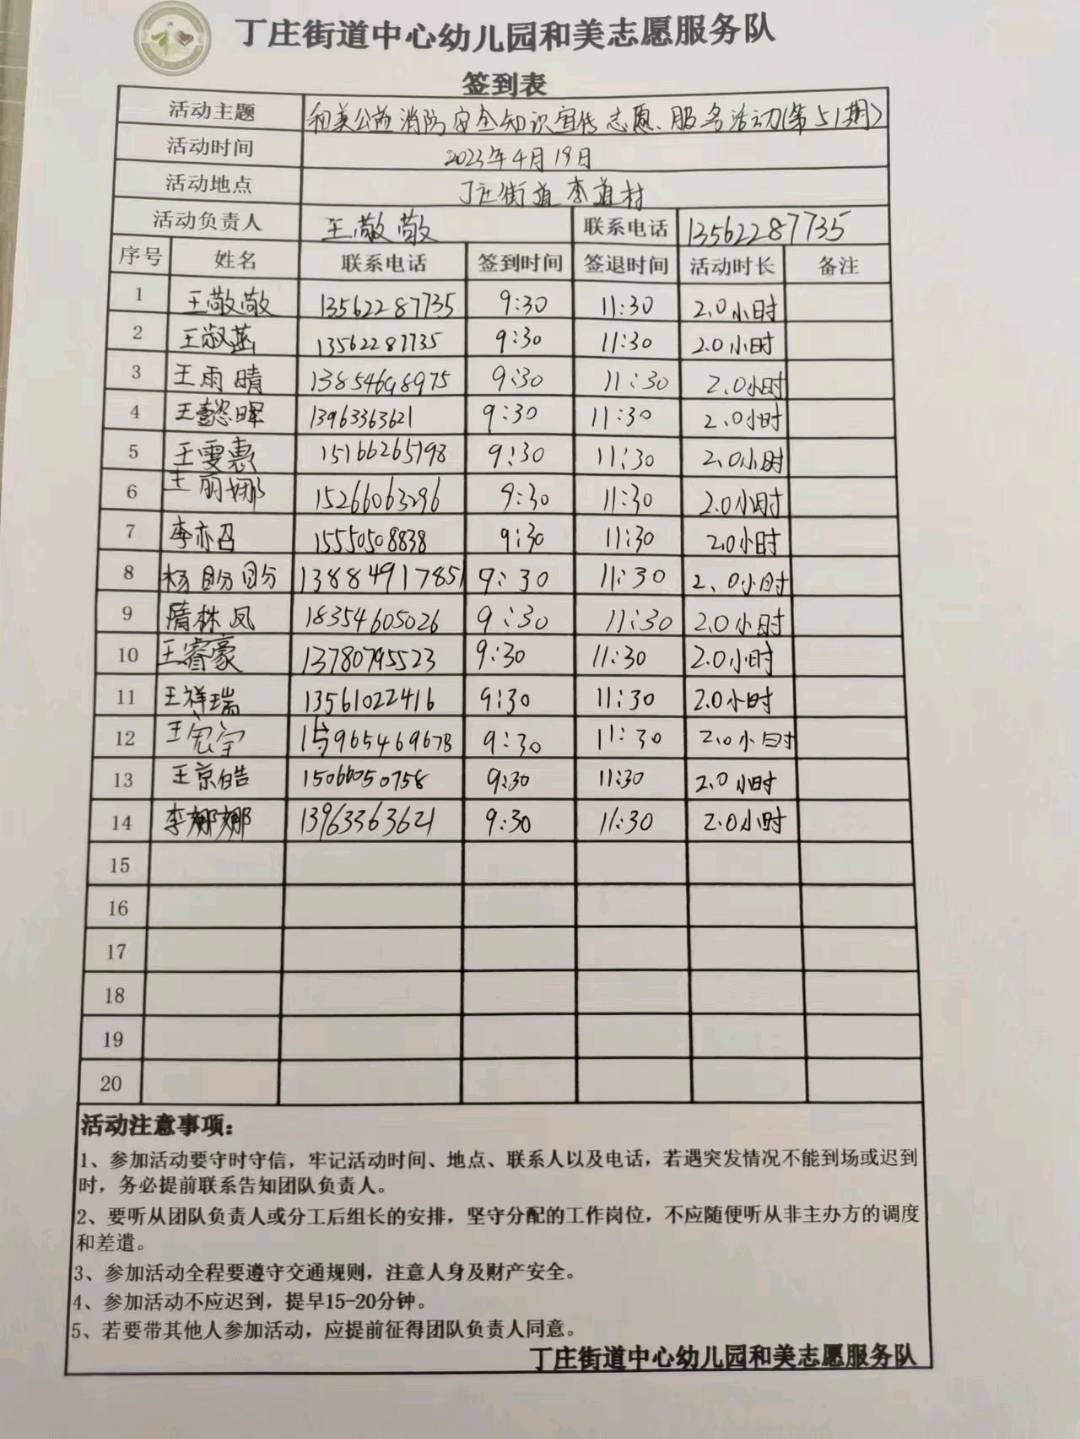 丁庄街道中心幼儿园和美志愿服务队
签到表
活动主题 和美公益消防安全知识宣传志愿服务活动(第51期)
活动时间 2023年4月19日
活动地点 丁庄街道李道村
活动负责人 王敬敬 联系电话 13562287735
序号 姓名 联系电话 签到时间 签退时间 活动时长 备注
1 王敬敬 13562287735 9:30 11:30 2.0小时
2 王淑菡 13562287735 9:30 11:30 2.0小时
3 王雨晴 13854698975 9:30 11:30 2.0小时
4 王懿晖 13963363621 9:30 11:30 2.0小时
5 王雯惠 15166265798 9:30 11:30 2.0小时
6 王丽娜 15266063296 9:30 11:30 2.0小时
7 李亦召 15550508838 9:30 11:30 2.0小时
8 杨盼盼 13884917851 9:30 11:30 2.0小时
9 隋林凤 18354605026 9:30 11:30 2.0小时
10 王睿豪 13780795523 9:30 11:30 2.0小时
11 王祥瑞 13561022416 9:30 11:30 2.0小时
12 王宏宇 15965469678 9:30 11:30 2.0小时
13 王京皓 15066050758 9:30 11:30 2.0小时
14 李娜娜 13963363621 9:30 11:30 2.0小时
15
16
17
18
19
20
活动注意事项：
1、参加活动要守时守信，牢记活动时间、地点、联系人以及电话，若遇突发情况不能到场或迟到
时，务必提前联系告知团队负责人。
2、要听从团队负责人或分工后组长的安排，坚守分配的工作岗位，不应随便听从非主办方的调度
和差遣。
3、参加活动全程要遵守交通规则，注意人身及财产安全。
4、参加活动不应迟到，提早15-20分钟。
5、若要带其他人参加活动，应提前征得团队负责人同意。
丁庄街道中心幼儿园和美志愿服务队